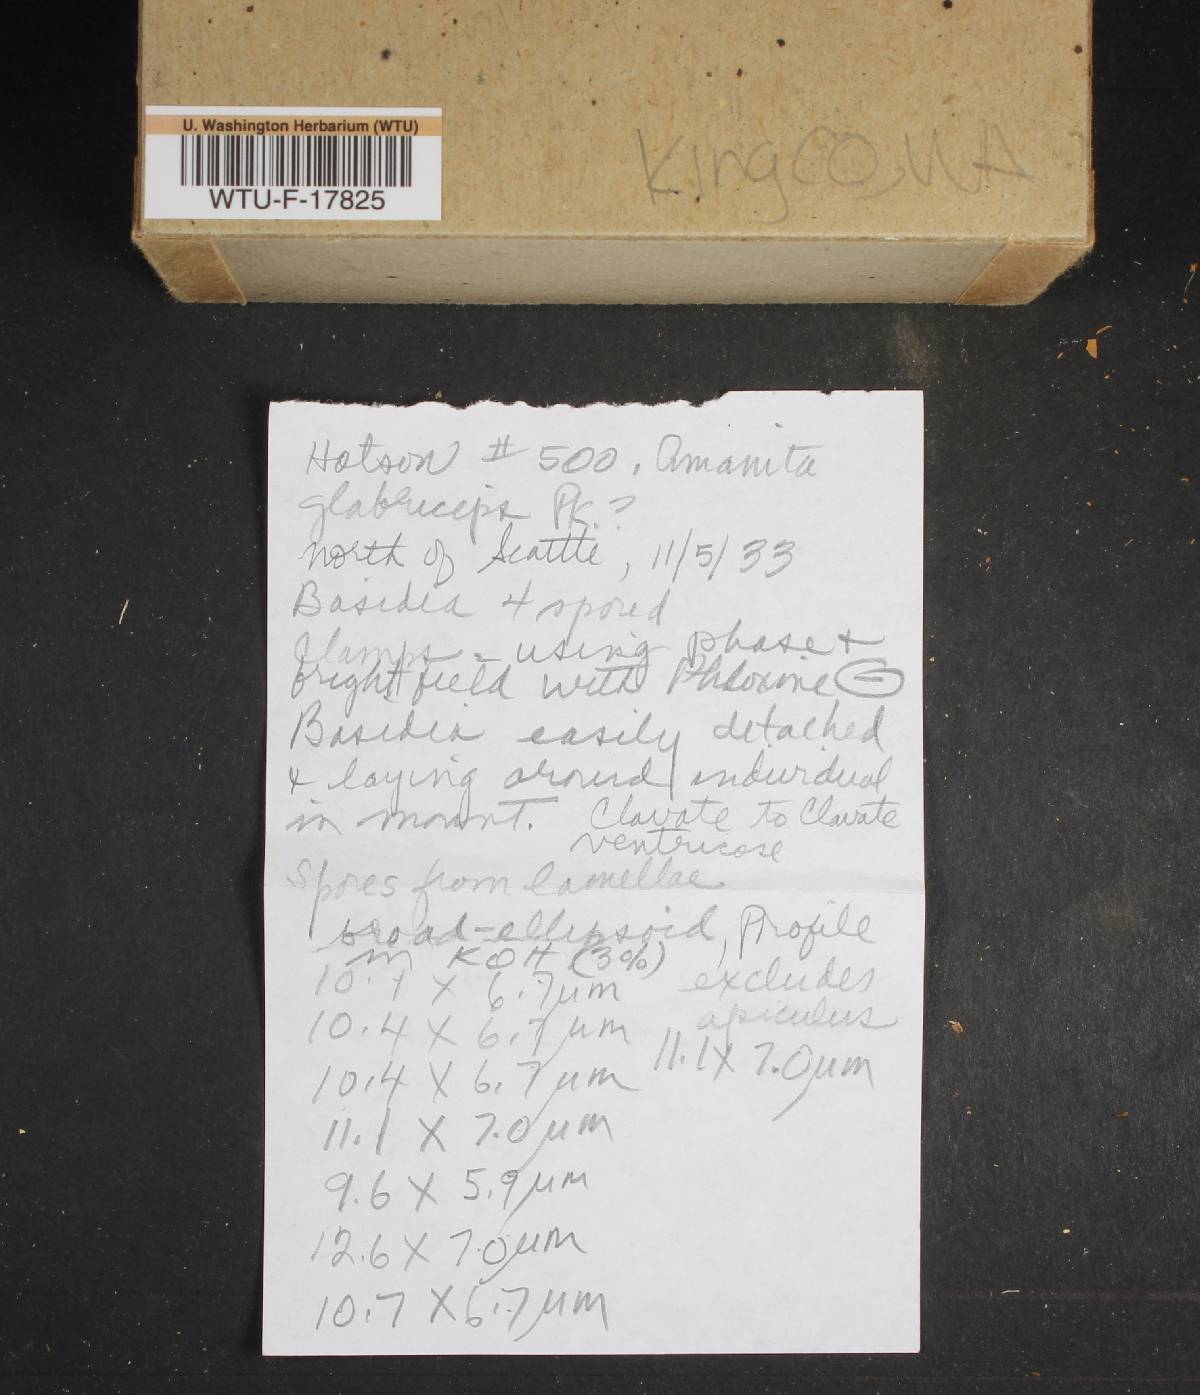 U. Washington Herbarium (WTU)
WTU-F-17825
King CO, WA
Hotson # 500. Amanita
glabriceps Pk.?
north of Seattle, 11/5/33
Basidia 4 spored
Clamps - using phase +
brightfield with Phloxine ⊖
Basidia easily detached
& laying around individual
in mount. Clavate to Clavate
ventricose
Spores from lamellae
broad-ellipsoid, Profile
in KOH (3%) excludes
apiculus
10.7 X 6.7 µm
10.4 X 6.7 µm
11.1 X 7.0 µm
10.4 X 6.7 µm
11.1 X 7.0 µm
9.6 X 5.9 µm
12.6 X 7.0 µm
10.7 X 6.7 µm